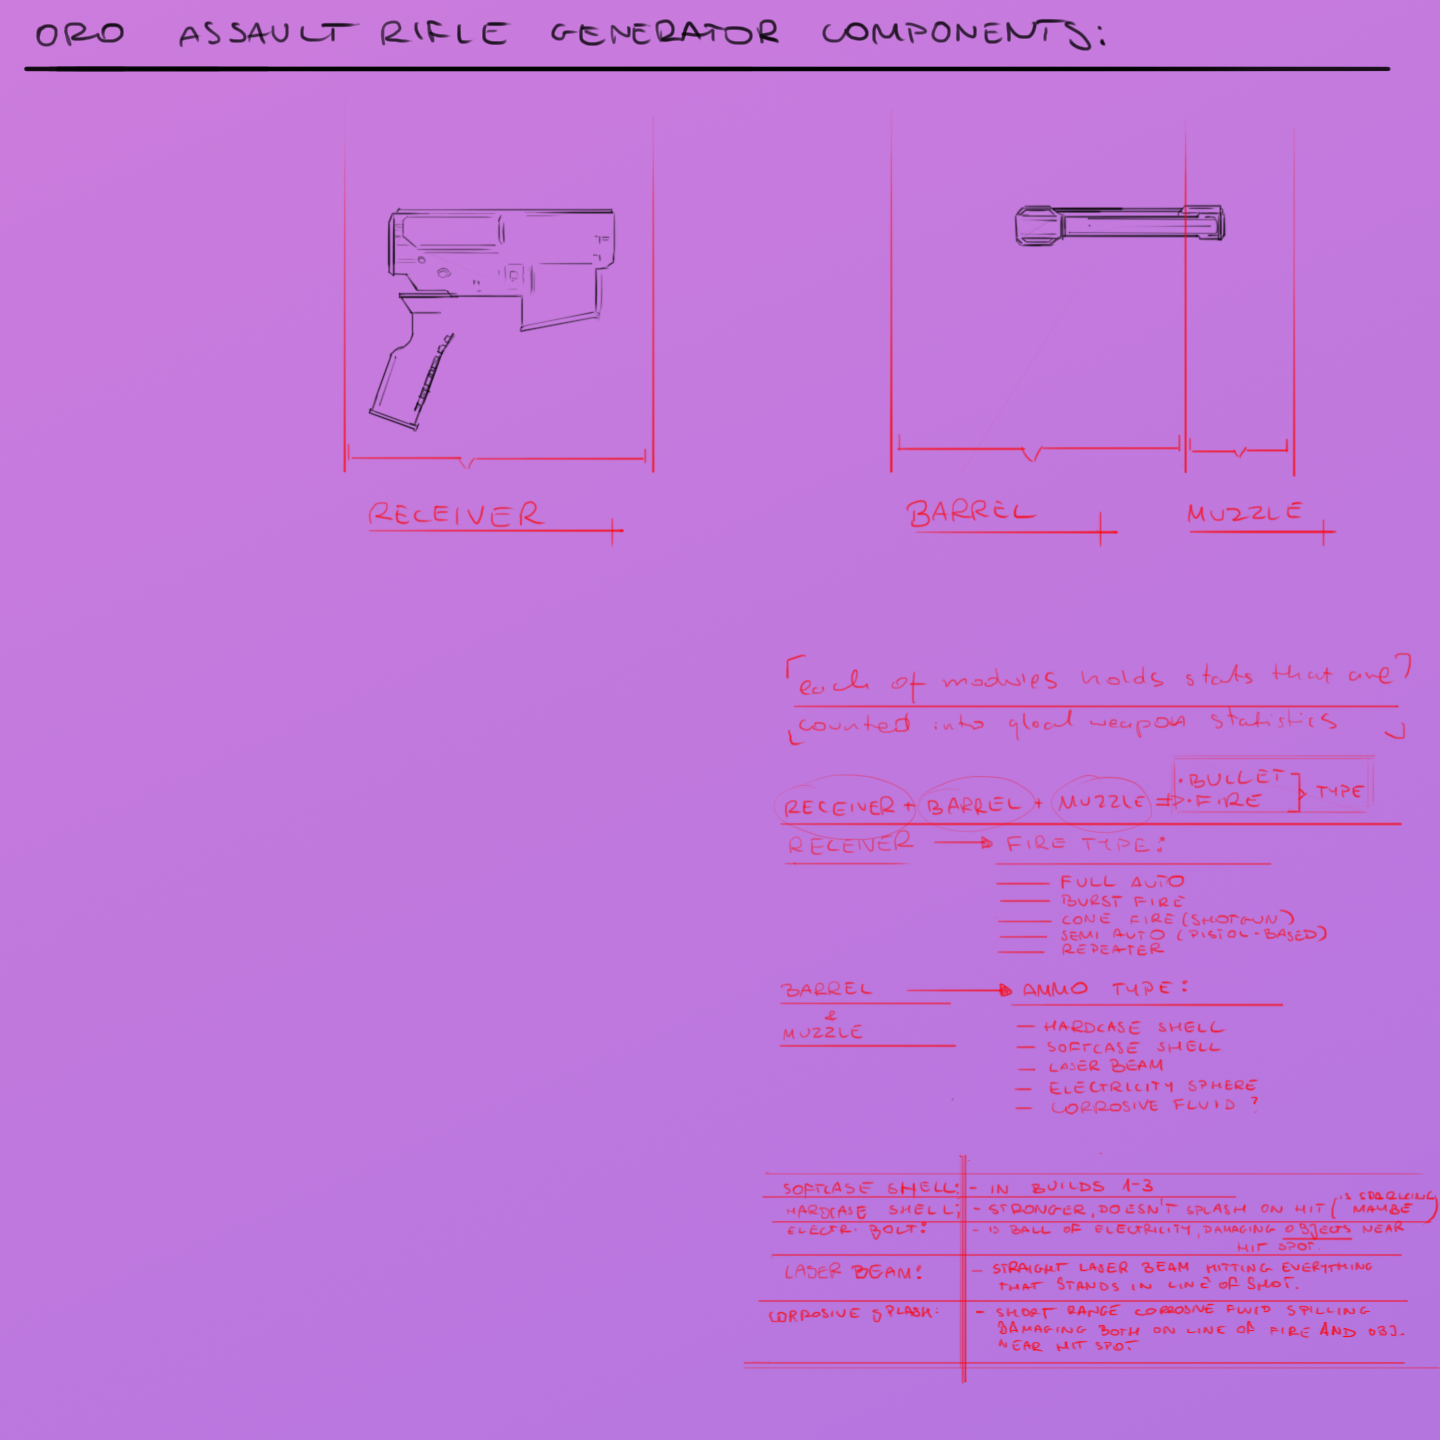 ORO ASSAULT RIFLE GENERATOR COMPONENTS:
RECEIVER
BARREL
MUZZLE
each of modules holds stats that are
counted into gloal weapon statistics
RECEIVER + BARREL + MUZZLE => · BULLET · FIRE } TYPE
RECEIVER → FIRE TYPE:
— FULL AUTO
— BURST FIRE
— CONE FIRE (SHOTGUN)
— SEMI AUTO (PISTOL-BASED)
— REPEATER
BARREL & MUZZLE → AMMO TYPE:
— HARDCASE SHELL
— SOFTCASE SHELL
— LASER BEAM
— ELECTRICITY SPHERE
— CORROSIVE FLUID ?
SOFTCASE SHELL: - IN BUILDS 1-3
HARDCASE SHELL: - STRONGER, DOESN'T SPLASH ON HIT (IS SPARKING MAYBE)
ELECTR. BOLT: - IS BALL OF ELECTRICITY, DAMAGING OBJECTS NEAR
HIT SPOT.
LASER BEAM: - STRAIGHT LASER BEAM HITTING EVERYTHING
THAT STANDS IN LINE OF SHOT.
CORROSIVE SPLASH: - SHORT RANGE CORROSIVE FLUID SPILLING
DAMAGING BOTH ON LINE OF FIRE AND OBJ.
NEAR HIT SPOT